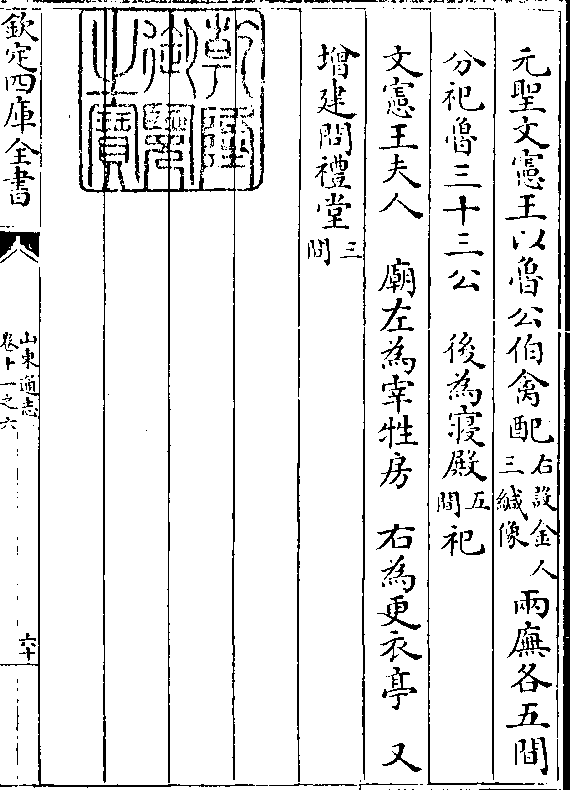 元聖文憲王以魯公伯禽配右設金人三緘像兩廡各五間
分祀魯三十三公　後為寢殿五間祀
文憲王夫人　廟左為宰牲房　右為更衣亭　又
增建問禮堂三間
乾隆御覽之寶
欽定四庫全書
山東通志
卷十一之六
六十